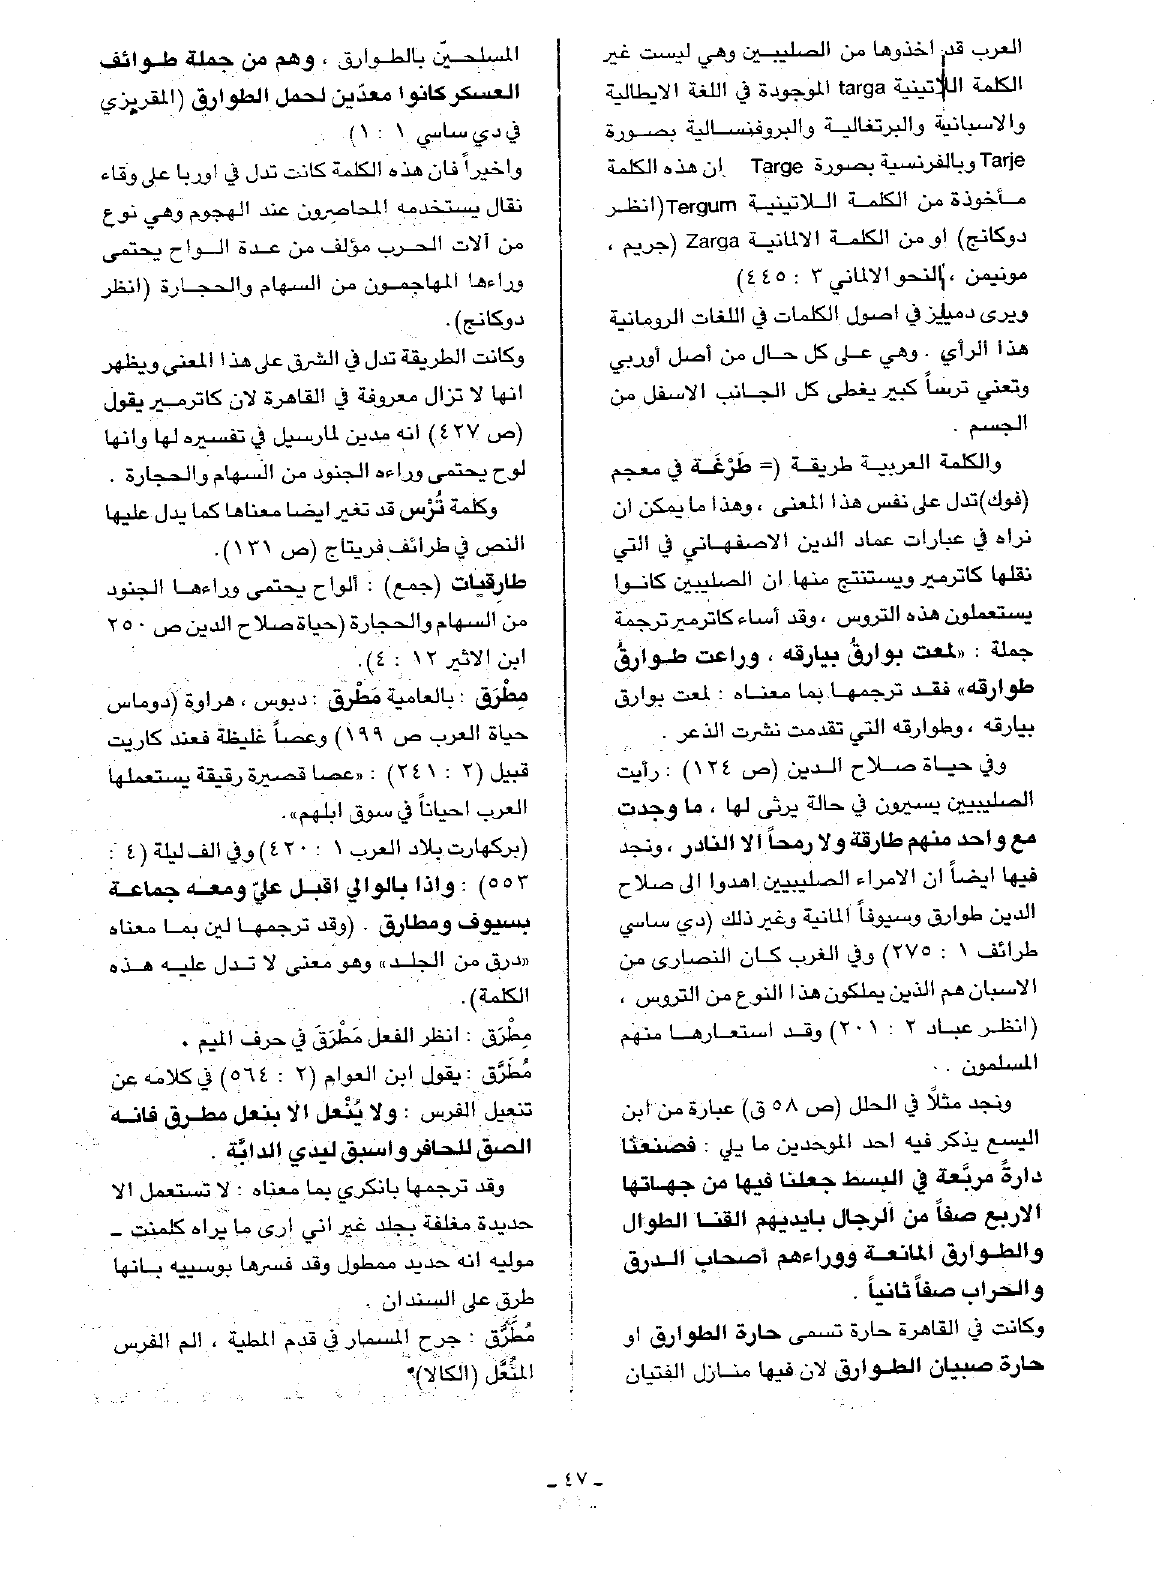 العرب قد اخذوها من الصليبيين وهي ليست غير
الكلمة اللاتينية targa الموجودة في اللغة الايطالية
والاسبانية والبرتغالية والبروفنسالية بصورة
Tarje وبالفرنسية بصورة Targe ان هذه الكلمة
مأخوذة من الكلمة اللاتينية Tergum (انظر
دوكانج) او من الكلمة الالمانية Zarga (جريم ،
مونيمن ، النحو الالماني ٣ : ٤٤٥)
ويرى دميلز في اصول الكلمات في اللغات الرومانية
هذا الرأي . وهي على كل حال من أصل أوربي
وتعني ترساً كبير يغطى كل الجانب الاسفل من
الجسم .
والكلمة العربية طريقة (= طَرْغَة في معجم
(فوك) تدل على نفس هذا المعنى ، وهذا ما يمكن ان
نراه في عبارات عماد الدين الاصفهاني في التي
نقلها كاترمير ويستنتج منها ان الصليبين كانوا
يستعملون هذه التروس ، وقد أساء كاترمير ترجمة
جملة : «لمعت بوارقُ بيارقه ، وراعت طوارقُ
طوارقه» فقد ترجمها بما معناه : لمعت بوارق
بيارقه ، وطوارقه التي تقدمت نشرت الذعر .
وفي حياة صلاح الدين (ص ١٢٤) : رأيت
الصليبيين يسيرون في حالة يرثى لها ، ما وجدت
مع واحد منهم طارقة ولا رمحاً الا النادر ، ونجد
فيها ايضاً ان الامراء الصليبيين اهدوا الى صلاح
الدين طوارق وسيوفاً المانية وغير ذلك (دي ساسي
طرائف ١ : ٢٧٥) وفي الغرب كان النصارى من
الاسبان هم الذين يملكون هذا النوع من التروس ،
(انظر عباد ٢ : ٢٠١) وقد استعارها منهم
المسلمون . .
ونجد مثلاً في الحلل (ص ٥٨ ق) عبارة من ابن
اليسع يذكر فيه احد الموحدين ما يلي : فصنعنا
دارةً مربّعة في البسط جعلنا فيها من جهاتها
الاربع صفاً من الرجال بايديهم القنا الطوال
والطوارق المانعة ووراءهم أصحاب الدرق
والحراب صفاً ثانياً .
وكانت في القاهرة حارة تسمى حارة الطوارق او
حارة صبيان الطوارق لان فيها منازل الفتيان
المسلحيّن بالطوارق ، وهم من جملة طوائف
العسكر كانوا معدّين لحمل الطوارق (المقريزي
في دي ساسي ١ : ١)
واخيراً فان هذه الكلمة كانت تدل في اوربا على وقاء
نقال يستخدمه المحاصرون عند الهجوم وهي نوع
من آلات الحرب مؤلف من عدة الواح يحتمى
وراءها المهاجمون من السهام والحجارة (انظر
دوكانج).
وكانت الطريقة تدل في الشرق على هذا المعنى ويظهر
انها لا تزال معروفة في القاهرة لان كاترمير يقول
(ص ٤٢٧) انه مدين لمارسيل في تفسيره لها وانها
لوح يحتمى وراءه الجنود من السهام والحجارة .
وكلمة تُرْس قد تغير ايضا معناها كما يدل عليها
النص في طرائف فريتاج (ص ١٣١).
طارقيات (جمع) : ألواح يحتمى وراءها الجنود
من السهام والحجارة (حياة صلاح الدين ص ٢٥٠
ابن الاثير ١٢ : ٤).
مِطْرَق : بالعامية مَطْرق : دبوس ، هراوة (دوماس
حياة العرب ص ١٩٩) وعصاً غليظة فعند كاريت
قبيل (٢ : ٢٤١) : «عصا قصيرة رقيقة يستعملها
العرب احياناً في سوق ابلهم».
(بركهارت بلاد العرب ١ : ٤٢٠) وفي الف ليلة (٤ :
٥٥٣) : واذا بالوالي اقبل عليّ ومعه جماعة
بسيوف ومطارق . (وقد ترجمها لين بما معناه
«درق من الجلد» وهو معنى لا تدل عليه هذه
الكلمة).
مِطْرَق : انظر الفعل مَطْرَقَ في حرف الميم .
مُطَرَّق : يقول ابن العوام (٢ : ٥٦٤) في كلامه عن
تنعيل الفرس : ولا يُنْعل الا بنعل مطرق فانه
الصق للحافر واسبق ليدي الدابَّة .
وقد ترجمها بانكري بما معناه : لا تستعمل الا
حديدة مغلفة بجلد غير اني أرى ما يراه كلمنت -
موليه انه حديد ممطول وقد فسرها بوسييه بانها
طرق على السندان .
مُطَرَّق : جرح المسمار في قدم المطية ، الم الفرس
المُنَعَّل (الكالا)
- ٤٧ -